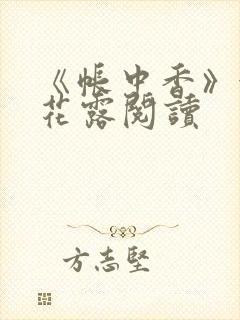 《帳中香》
花露閱讀
方志堅